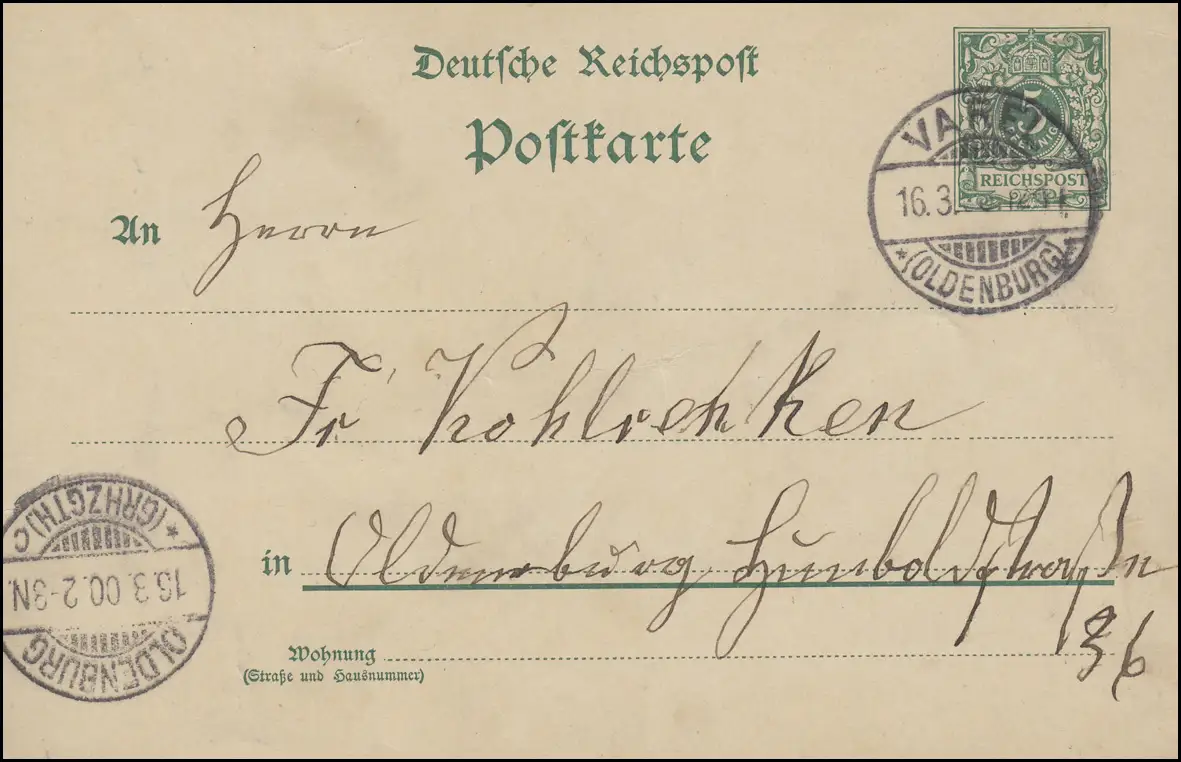 Deutsche Reichspost
Postkarte
5
REICHSPOST
VAREL
16.3.
*(OLDENBURG)*
An Herrn
Fr Kohlrenken
in Oldenburg Humboldstraße
36
Wohnung
(Straße und Hausnummer)
OLDENBURG
16.3.00.2-3N.
*(GRHZGTH.)C